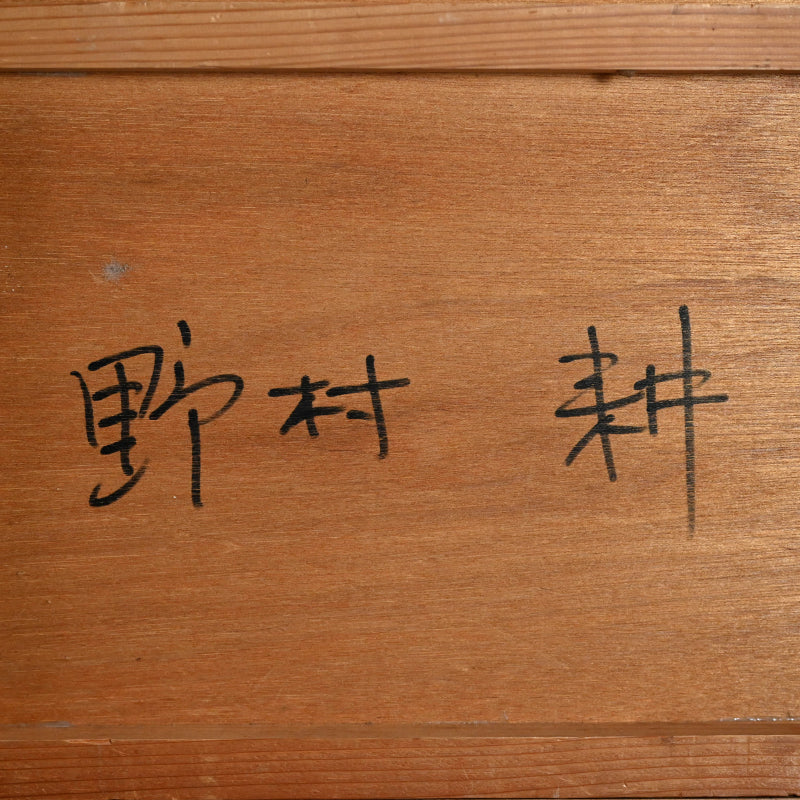 野村 耕